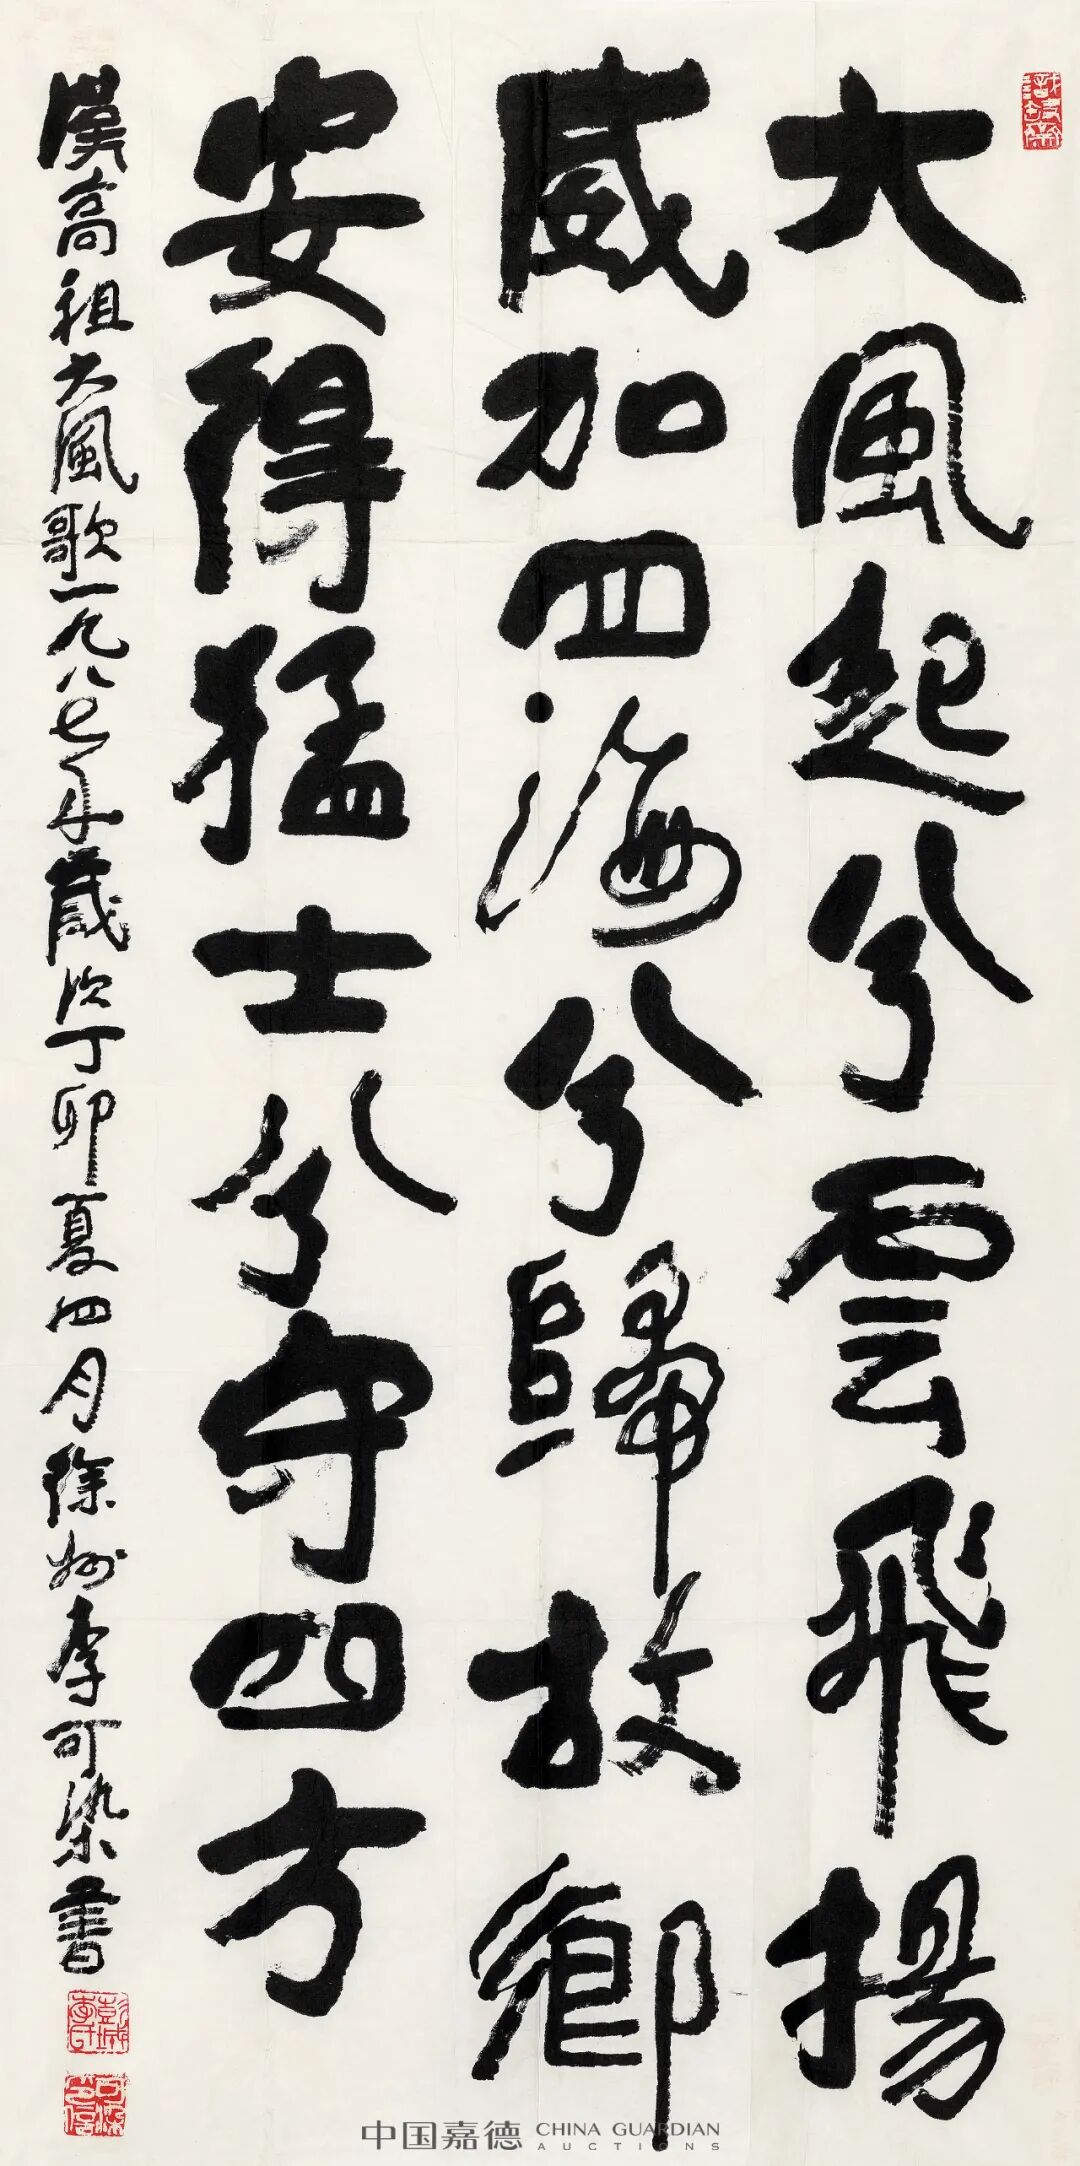 大風起兮雲飛揚
威加四海兮歸故鄉
安得猛士兮守四方
漢高祖大風歌一九八七年歲次丁卯夏四月徐州李可染書
彭城李氏
可染
中国嘉德 CHINA GUARDIAN AUCTIONS